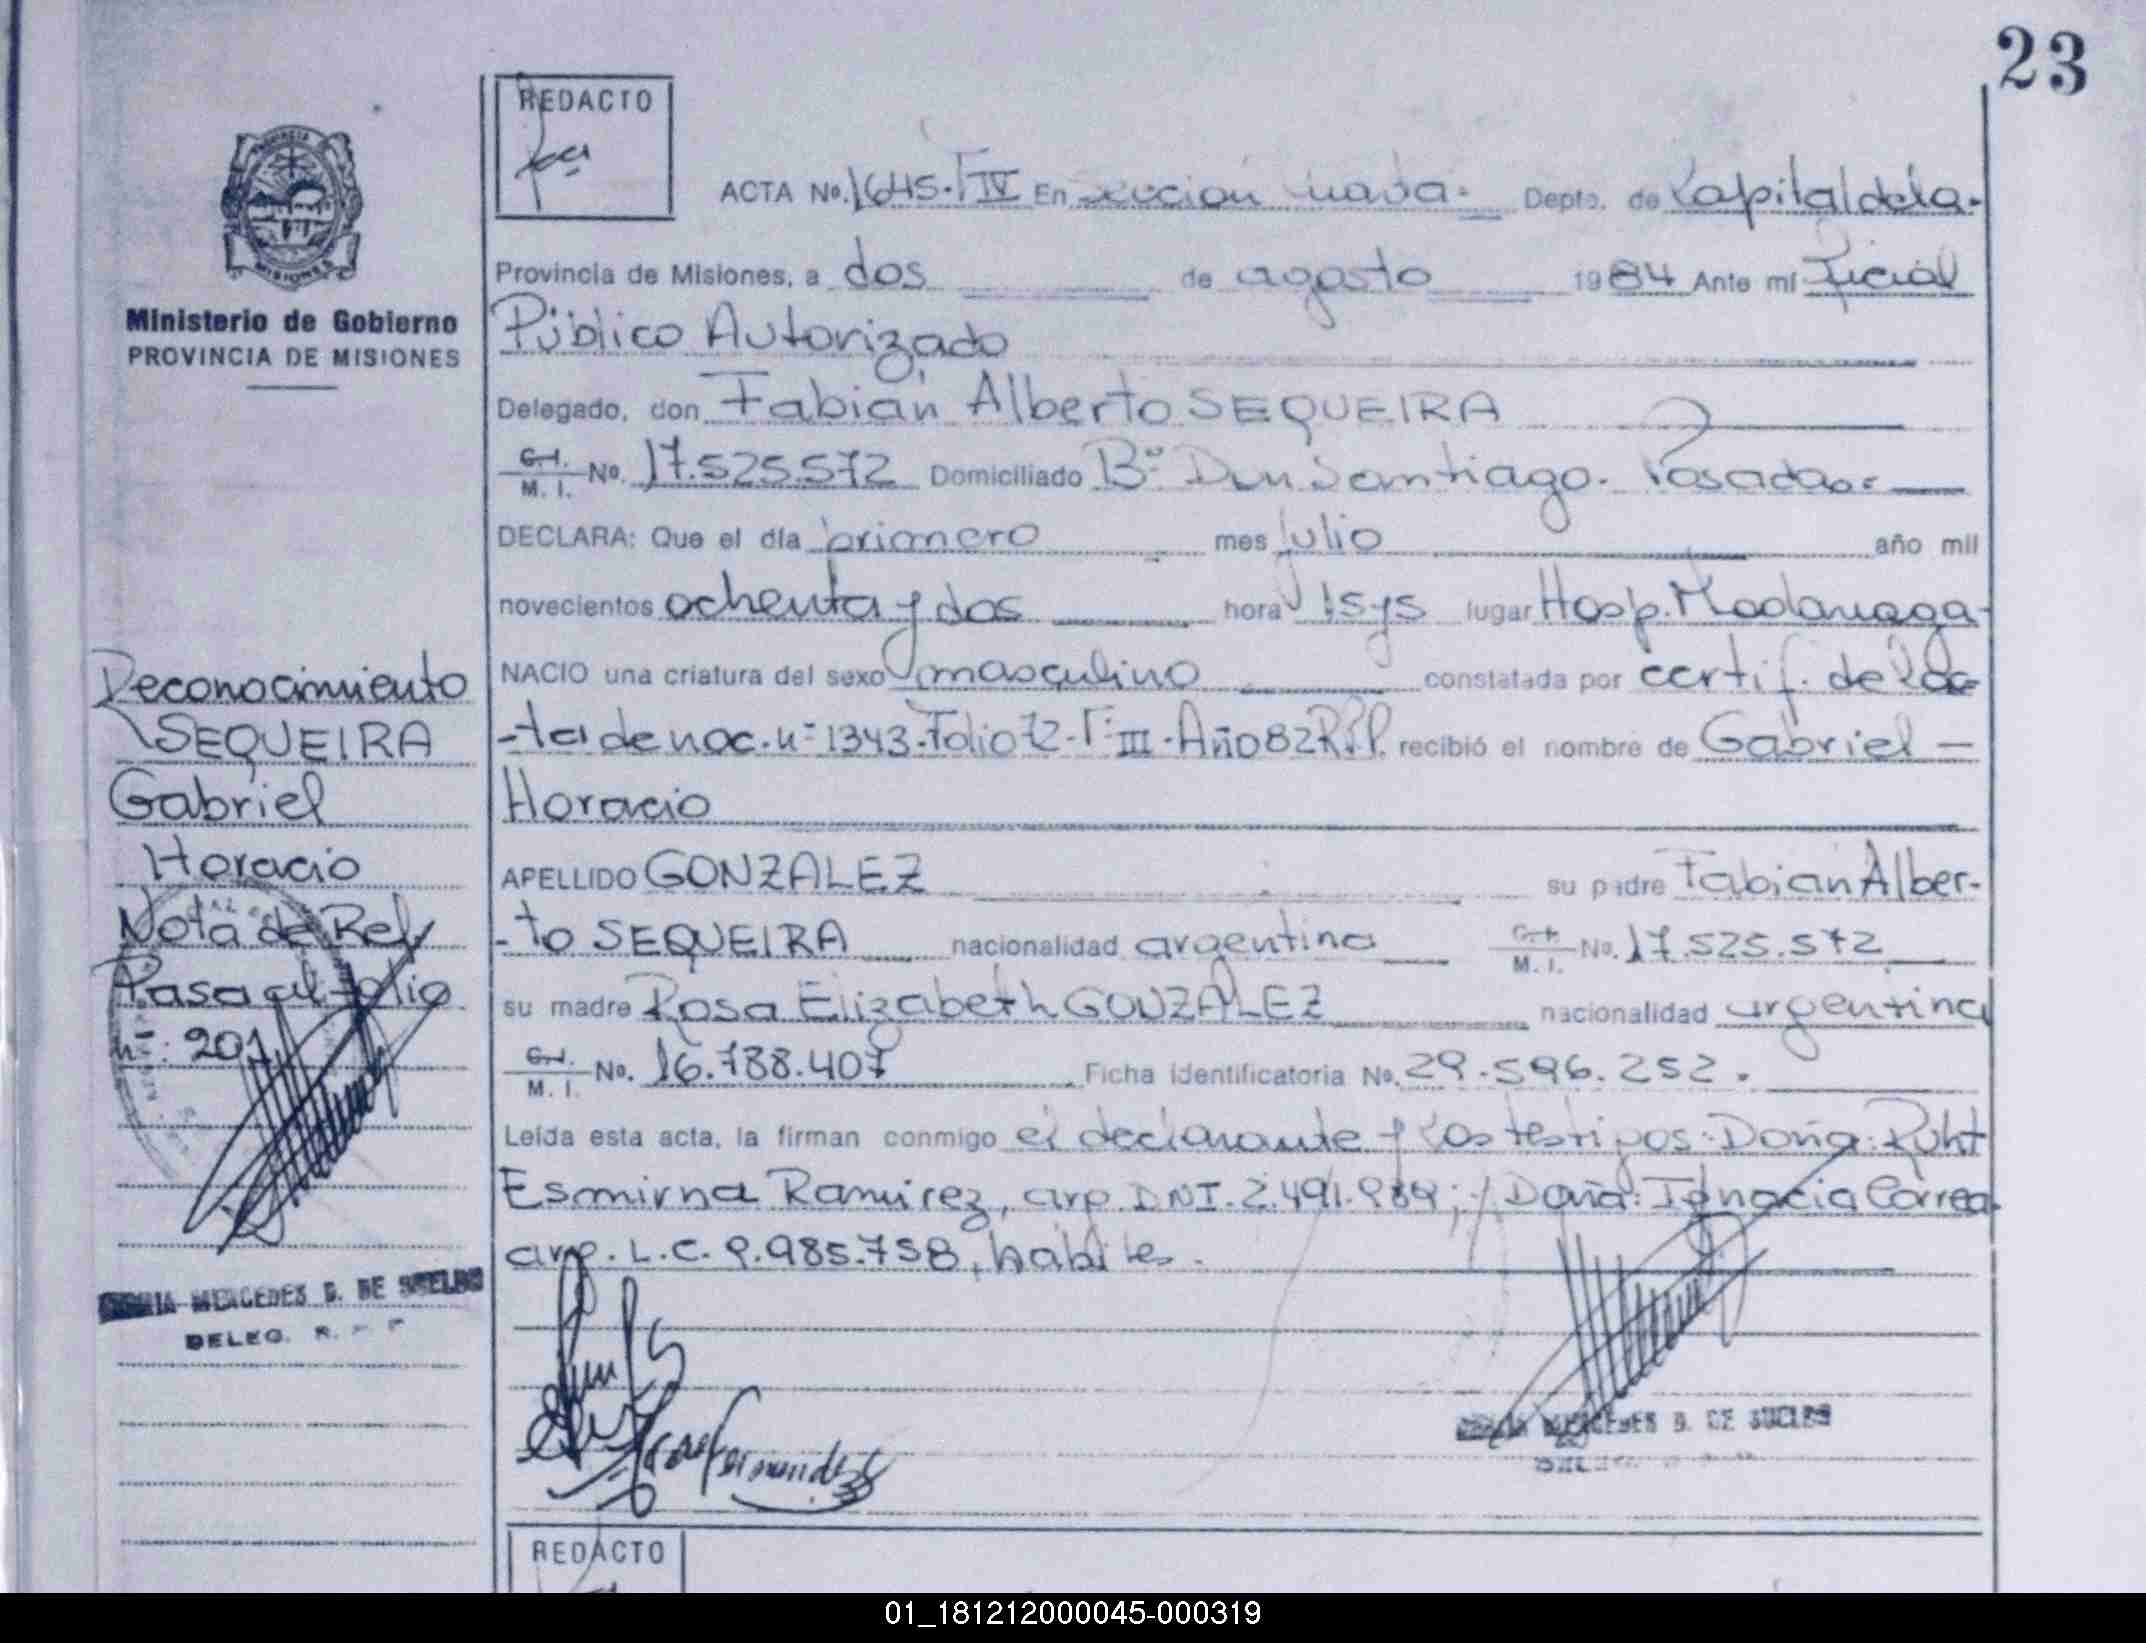 23
REDACTO
ACTA No. 1645. T IV En sección Depto. de Capital de la
Provincia de Misiones, a dos de agosto 1984 Ante mí
Público Autorizado
Delegado, don Fabián Alberto SEQUEIRA
C.I. M. I. No. 17.525.572 Domiciliado Bº Don Santiago. Posadas
DECLARA: Que el día primero mes julio año mil
novecientos ochenta y dos hora 15 y 5 lugar Hosp. Madariaga
NACIO una criatura del sexo masculino constatada por certif. del ac
-ta de nac. nº 1343. Folio 72 - Tº III - Año 82 R.P.P. recibió el nombre de Gabriel
Horacio
APELLIDO GONZALEZ su padre Fabián Alber-
-to SEQUEIRA nacionalidad argentina C.I. M. I. No. 17.525.572
su madre Rosa Elizabeth GONZALEZ nacionalidad argentina
C.I. M. I. No. 16.788.407 Ficha Identificatoria No. 29.596.252.
Leída esta acta, la firman conmigo el declarante y los testigos: Doña: Ruht
Esmirna Ramirez, arg. DNI. 2.491.989; y Doña: Ignacia Correa
arg. L.C. 9.985.758, hábiles.
MERCEDES DE
Ministerio de Gobierno
PROVINCIA DE MISIONES
MISIONES
Reconocimiento
SEQUEIRA
Gabriel
Horacio
Nota de Ref
Pasa al folio
nº: 201
MERCEDES DE
DELEG. R.
REDACTO
01_181212000045-000319